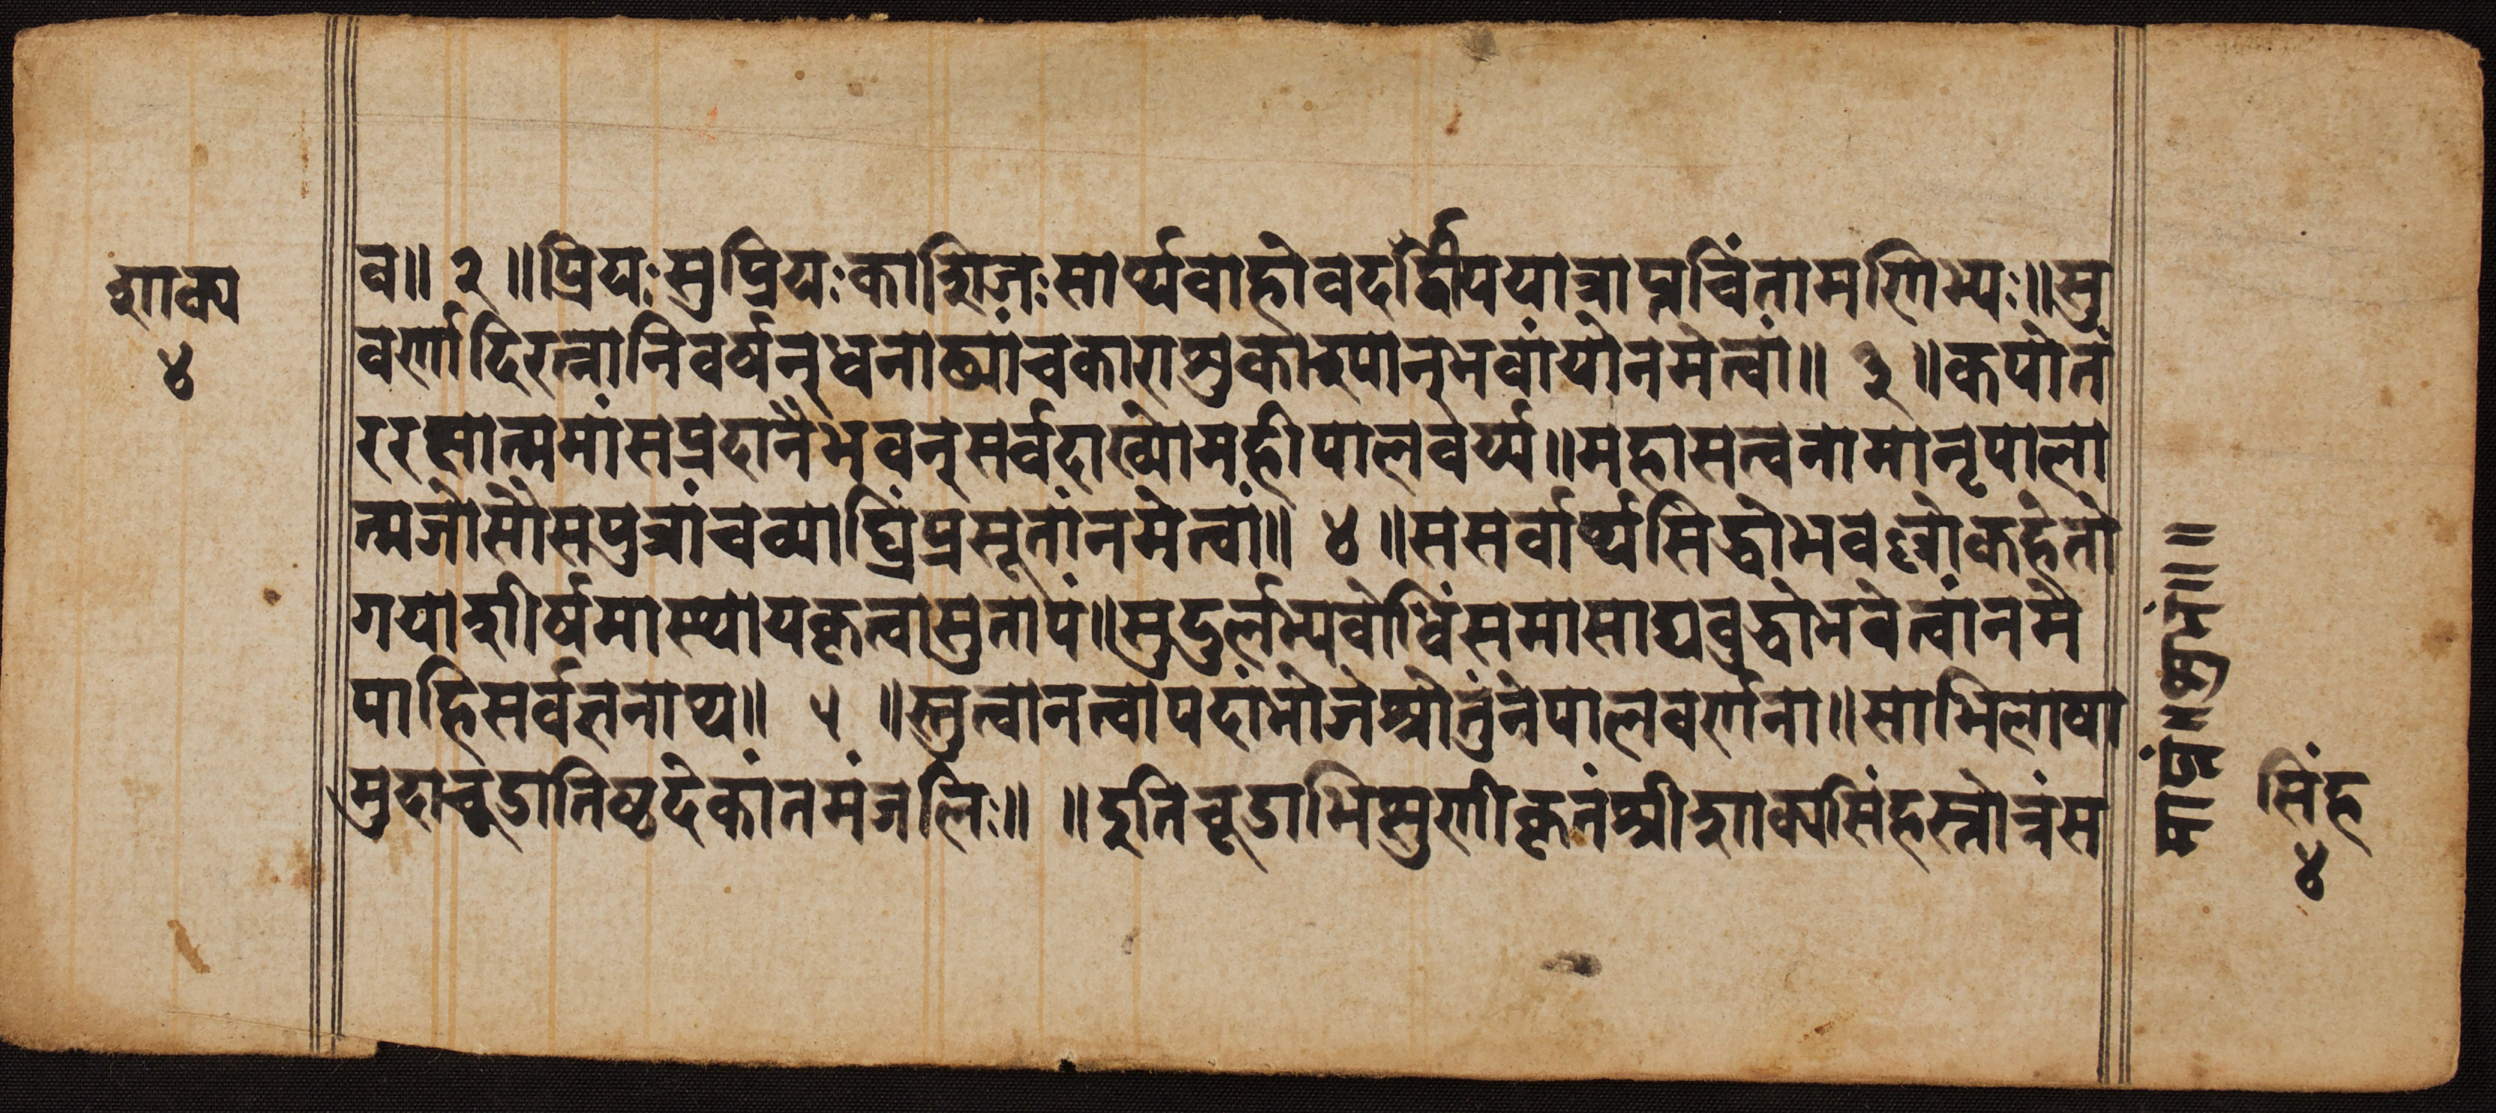 शाक्य
४
व॥ २ ॥प्रियःसुप्रियःकाशिजःसार्थवाहोवदर्द्वीपयात्राप्तचिंतामणिभ्यः॥सु
वर्णादिरत्नानिवर्षन्धनाढ्यांचकाराशुकारुपानुभवांयोनमेत्वां॥ ३ ॥कपोतं
ररक्षात्ममांसप्रदानैभवन्सर्वदाख्योमहीपालवर्य्य॥महासत्वनामानृपाला
त्मजोसौसपुत्रांचव्याघ्रिंप्रसूतांनमेत्वां॥ ४ ॥ससर्वार्थसिद्धोभवल्लोकहेतो
गयाशीर्षमास्थायकृत्वासुतापं॥सुदुर्लभ्यवोधिंसमासाद्यवुद्धोभवेत्वांनमे
पाहिसर्वज्ञनाथ॥ ५ ॥स्तुत्वानत्वापदांभोजेश्रोतुंनेपालवर्णना॥साभिलाषा
मुदाचूडातिष्ठदेकांतमंजलिः॥ ॥इतिचूडाभिक्षुणीकृतंश्रीशाक्यसिंहस्तोत्रंस
सिंह
४